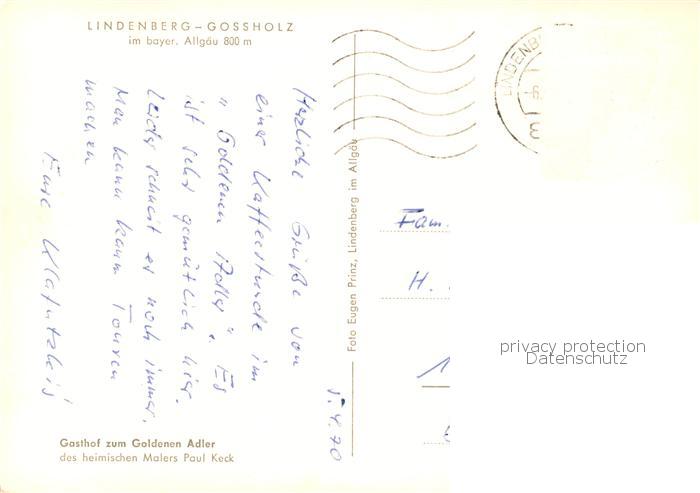 LINDENBERG – GOSSHOLZ
im bayer. Allgäu 800 m
Herzliche Grüße von
einer Kaffeestunde im
"Goldenen Adler". Es
ist sehr gemütlich hier.
Leider schneit es noch immer.
Man kann kaum Touren
machen
Eure
5.4.70
Foto Eugen Prinz, Lindenberg im Allgäu
LINDENB
Fam.
H.
privacy protection
Datenschutz
Gasthof zum Goldenen Adler
des heimischen Malers Paul Keck